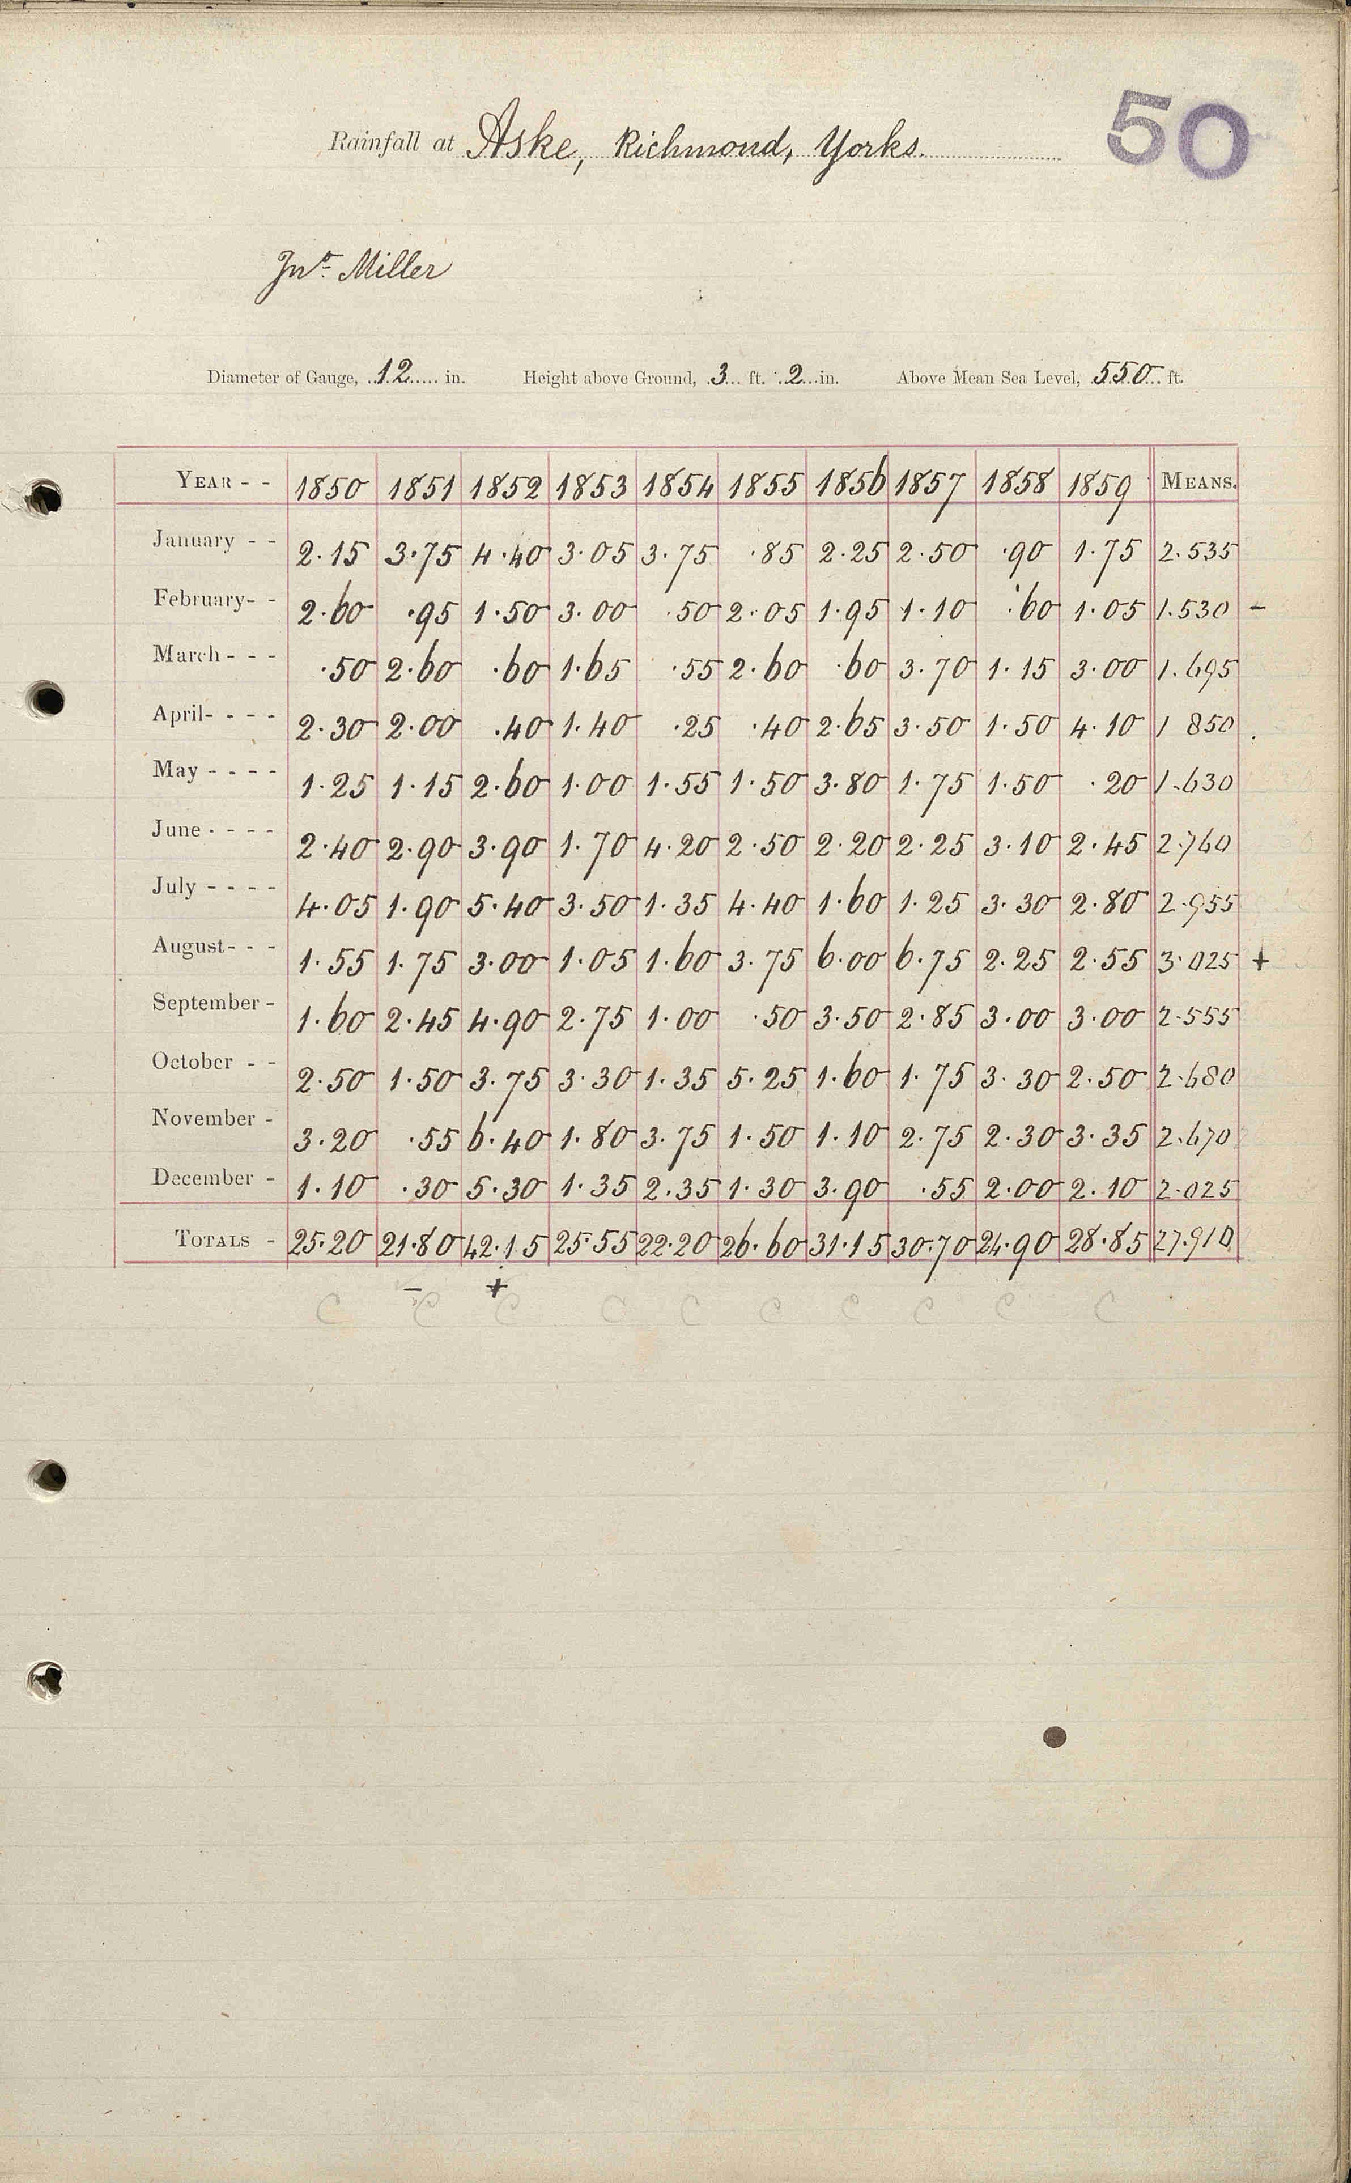 50
Rainfall at Aske, Richmond, Yorks.
Jnº Miller
Diameter of Gauge, 12 in. Height above Ground, 3 ft. 2 in. Above Mean Sea Level, 550 ft.
YEAR - - 1850 1851 1852 1853 1854 1855 1856 1857 1858 1859 MEANS.
January - - 2.15 3.75 4.40 3.05 3.75 .85 2.25 2.50 .90 1.75 2.535
February- - 2.60 .95 1.50 3.00 .50 2.05 1.95 1.10 .60 1.05 1.530 -
March - - - .50 2.60 .60 1.65 .55 2.60 .60 3.70 1.15 3.00 1.695
April- - - - 2.30 2.00 .40 1.40 .25 .40 2.65 3.50 1.50 4.10 1 850
May - - - - 1.25 1.15 2.60 1.00 1.55 1.50 3.80 1.75 1.50 .20 1.630
June - - - - 2.40 2.90 3.90 1.70 4.20 2.50 2.20 2.25 3.10 2.45 2.760
July - - - - 4.05 1.90 5.40 3.50 1.35 4.40 1.60 1.25 3.30 2.80 2.955
August- - - 1.55 1.75 3.00 1.05 1.60 3.75 6.00 6.75 2.25 2.55 3.025 +
September - 1.60 2.45 4.90 2.75 1.00 .50 3.50 2.85 3.00 3.00 2.555
October - - 2.50 1.50 3.75 3.30 1.35 5.25 1.60 1.75 3.30 2.50 2.680
November - 3.20 .55 6.40 1.80 3.75 1.50 1.10 2.75 2.30 3.35 2.670
December - 1.10 .30 5.30 1.35 2.35 1.30 3.90 .55 2.00 2.10 2.025
TOTALS - 25.20 21.80 42.15 25.55 22.20 26.60 31.15 30.70 24.90 28.85 27.910
- +
C C C C C C C C C C